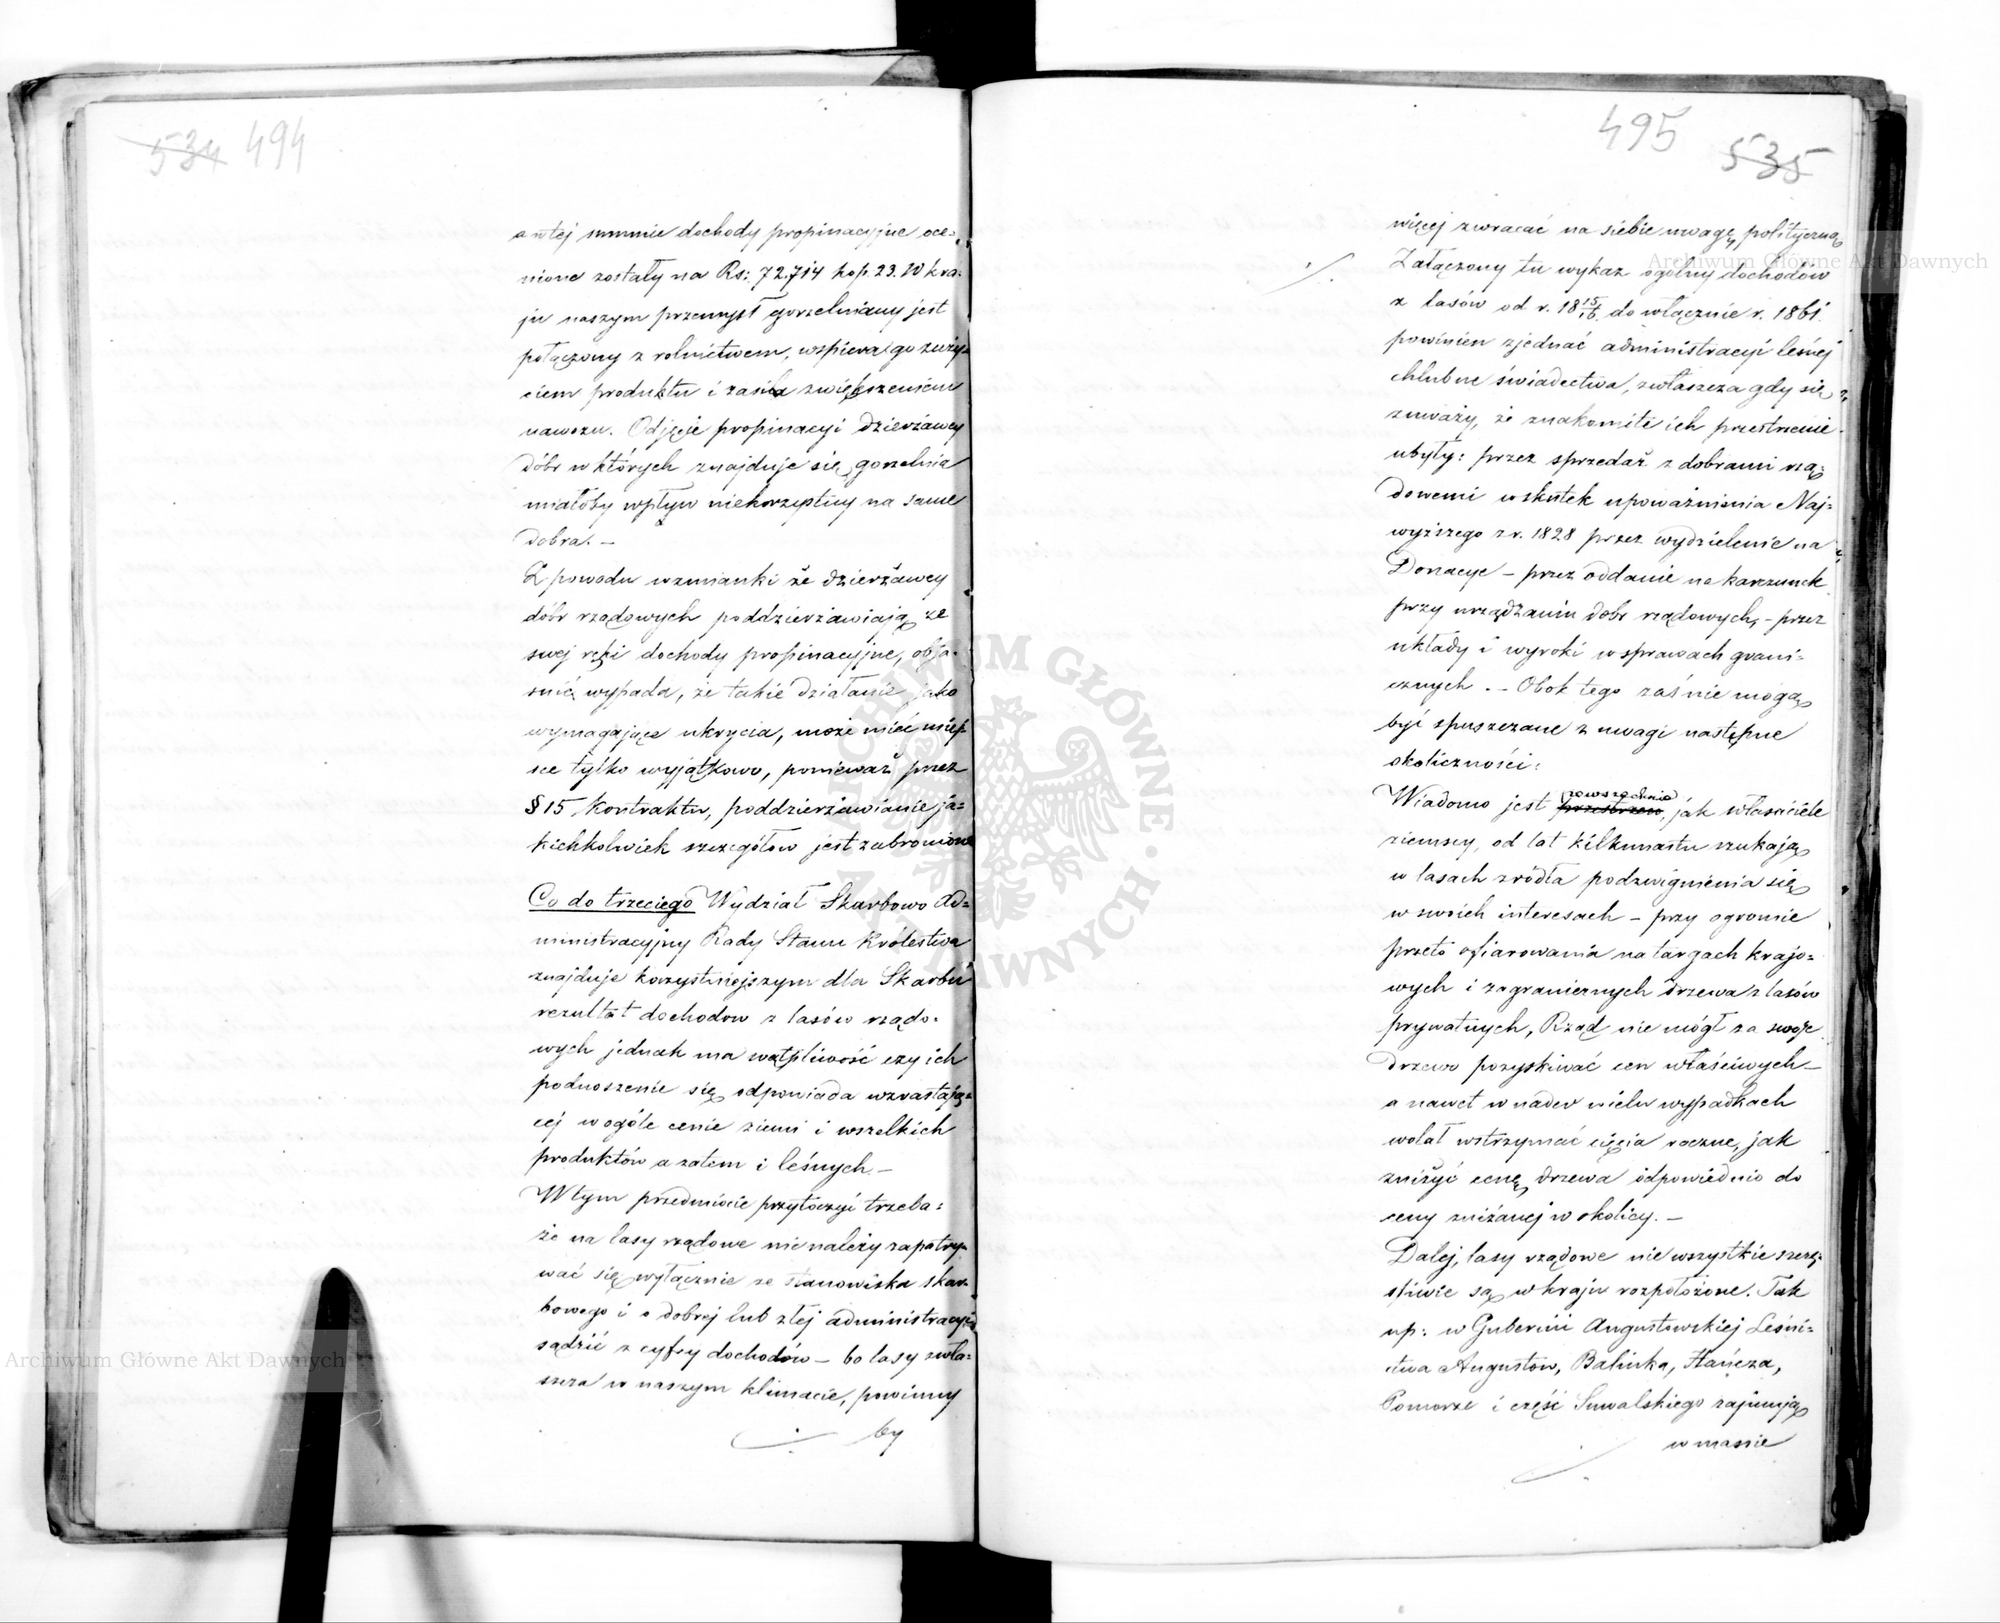 534 494
a w tej summie dochody propinacyjne oce-
nione zostały na Rs: 72.714 kop. 23. W kra-
ju naszym przemysł gorzelniany jest
połączony z rolnictwem, wspiera go zuży-
ciem produktu i zasila zwiększeniem
nawozu. Odjęcie propinacyi dzierżawcy
dóbr w których znajduje się gorzelnia
miałoby wpływ niekorzystny na same
dobra. –
Z powodu wzmianki że dzierżawcy
dóbr rządowych poddzierżawiają ze
swej ręki dochody propinacyjne, obja-
śnić wypada, że takie działanie jako
wymagające ukrycia, może mieć miej-
sce tylko wyjątkowo, ponieważ przez
§ 15 kontraktu, poddzierżawianie ja-
kichkolwiek szczegółów jest zabronione
Co do trzeciego Wydział Skarbowo Ad=
ministracyjny Rady Stanu Królestwa
znajduje korzystniejszym dla Skarbu
rezultat dochodow z lasów rządo-
wych jednak ma wątpliwość czy ich
podnoszenie się odpowiada wzrastają=
cej w ogóle cenie ziemi i wszelkich
produktów a zatem i leśnych –
W tym przedmiocie przytoczyć trzeba:
że na lasy rządowe nie należy zapatry-
wać się wyłącznie ze stanowiska skar-
bowego i o dobrej lub złej administracyi
sądzić z cyfry dochodów – bo lasy zwła-
szcza w naszym klimacie, powinny
by
495 535
więcej zwracać na siebie uwagę polityczną
Załączony tu wykaz ogólny dochodów
z lasów od r. 18 15/16 do włącznie r. 1861.
powinien zjednać administracyi leśnej
chlubne świadectwa, zwłaszcza gdy się
zuważy, że znakomite ich przestrzenie
ubyły: przez sprzedaż z dobrami rzą-
dowemi wskutek upoważnienia Naj=
wyższego z r. 1828 przez wydzielenie na
Donacye – przez oddanie na karczunek
przy urządzaniu dobr rządowych, – przez
układy i wyroki w sprawach grani=
cznych. – Obok tego zaś nie mogą
być spuszczane z uwagi następne
okoliczności:
powszechnie
Wiadomo jest , jak właściciele
ziemscy, od lat kilkunastu szukają
w lasach zródła podzwignienia się
w swoich interesach – przy ogromie
przeto ofiarowania na targach krajo=
wych i zagranicznych drzewa z lasów
prywatnych, Rząd nie mógł za swoje
drzewo pozyskiwać cen właściwych –
a nawet w nader wielu wypadkach
wolał wstrzymać cięcia roczne, jak
zniżyć cenę drzewa odpowiednio do
ceny zniżanej w okolicy. –
Dalej, lasy rządowe nie wszystkie szczę-
śliwie są w kraju rozpołożone. Tak
np: w Gubernii Augustowskiej Leśni=
ctwa Augustów, Balinka, Hańcza,
Pomorze i część Suwalskiego zajmują
w massie
ARCHIWUM GŁÓWNE AKT DAWNYCH
Archiwum Główne Akt Dawnych
Archiwum Główne Akt Dawnych